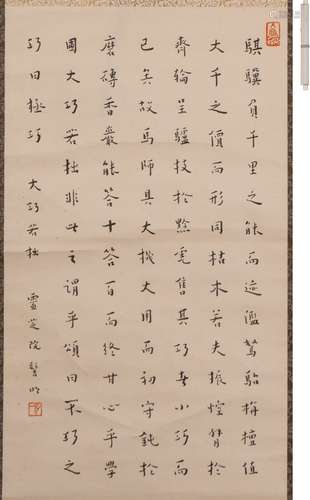 騏驥負千里之能而迹濫駑駘栴檀值
大千之價而形同枯木若夫振怪臂於
齊輪呈驢技於黔兔售其巧者小巧而
已矣故馬師具大機大用而初守鈍於
磨磚香嚴能答十答百而終甘心乎學
圃大巧若拙非此之謂乎頌曰不巧之
巧曰極巧 大巧若拙